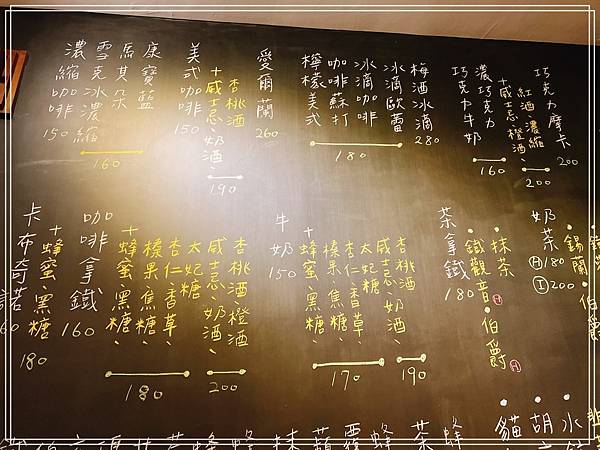 濃縮咖啡 150
雪克冰濃縮
馬其朵
康寶藍
160
美式咖啡 150
+威士忌、奶酒、
杏桃酒
190
愛爾蘭 260
檸檬美式
咖啡蘇打
冰滴咖啡
冰滴歐蕾
180
梅酒冰滴 280
巧克力牛奶
濃巧克力
160
+威士忌、橙酒、
紅酒、濃縮
200
巧克力摩卡 200
卡布奇諾
60
+蜂蜜、黑糖
180
咖啡拿鐵 160
+蜂蜜、黑糖、
榛果、焦糖、
杏仁、香草、
太妃糖
180
威士忌、奶酒、
杏桃酒、橙酒
200
牛奶 150
+蜂蜜、黑糖、
榛果、焦糖、
杏仁、香草、
太妃糖
170
威士忌、奶酒、
杏桃酒
190
茶拿鐵 180
·鐵觀音Ⓗ·伯爵Ⓗ
·抹茶
奶茶 Ⓗ180
Ⓘ200
·錫蘭·伯爵
蜂
茶
蜂
覆
蘋
抹
·貓
·胡
·水